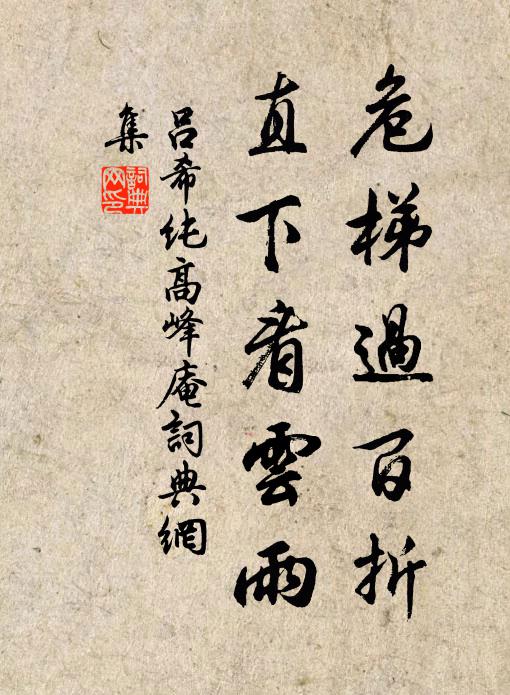 危梯過百折
直下看雲雨
呂希純高峰庵詞典網
集
詞典
网印